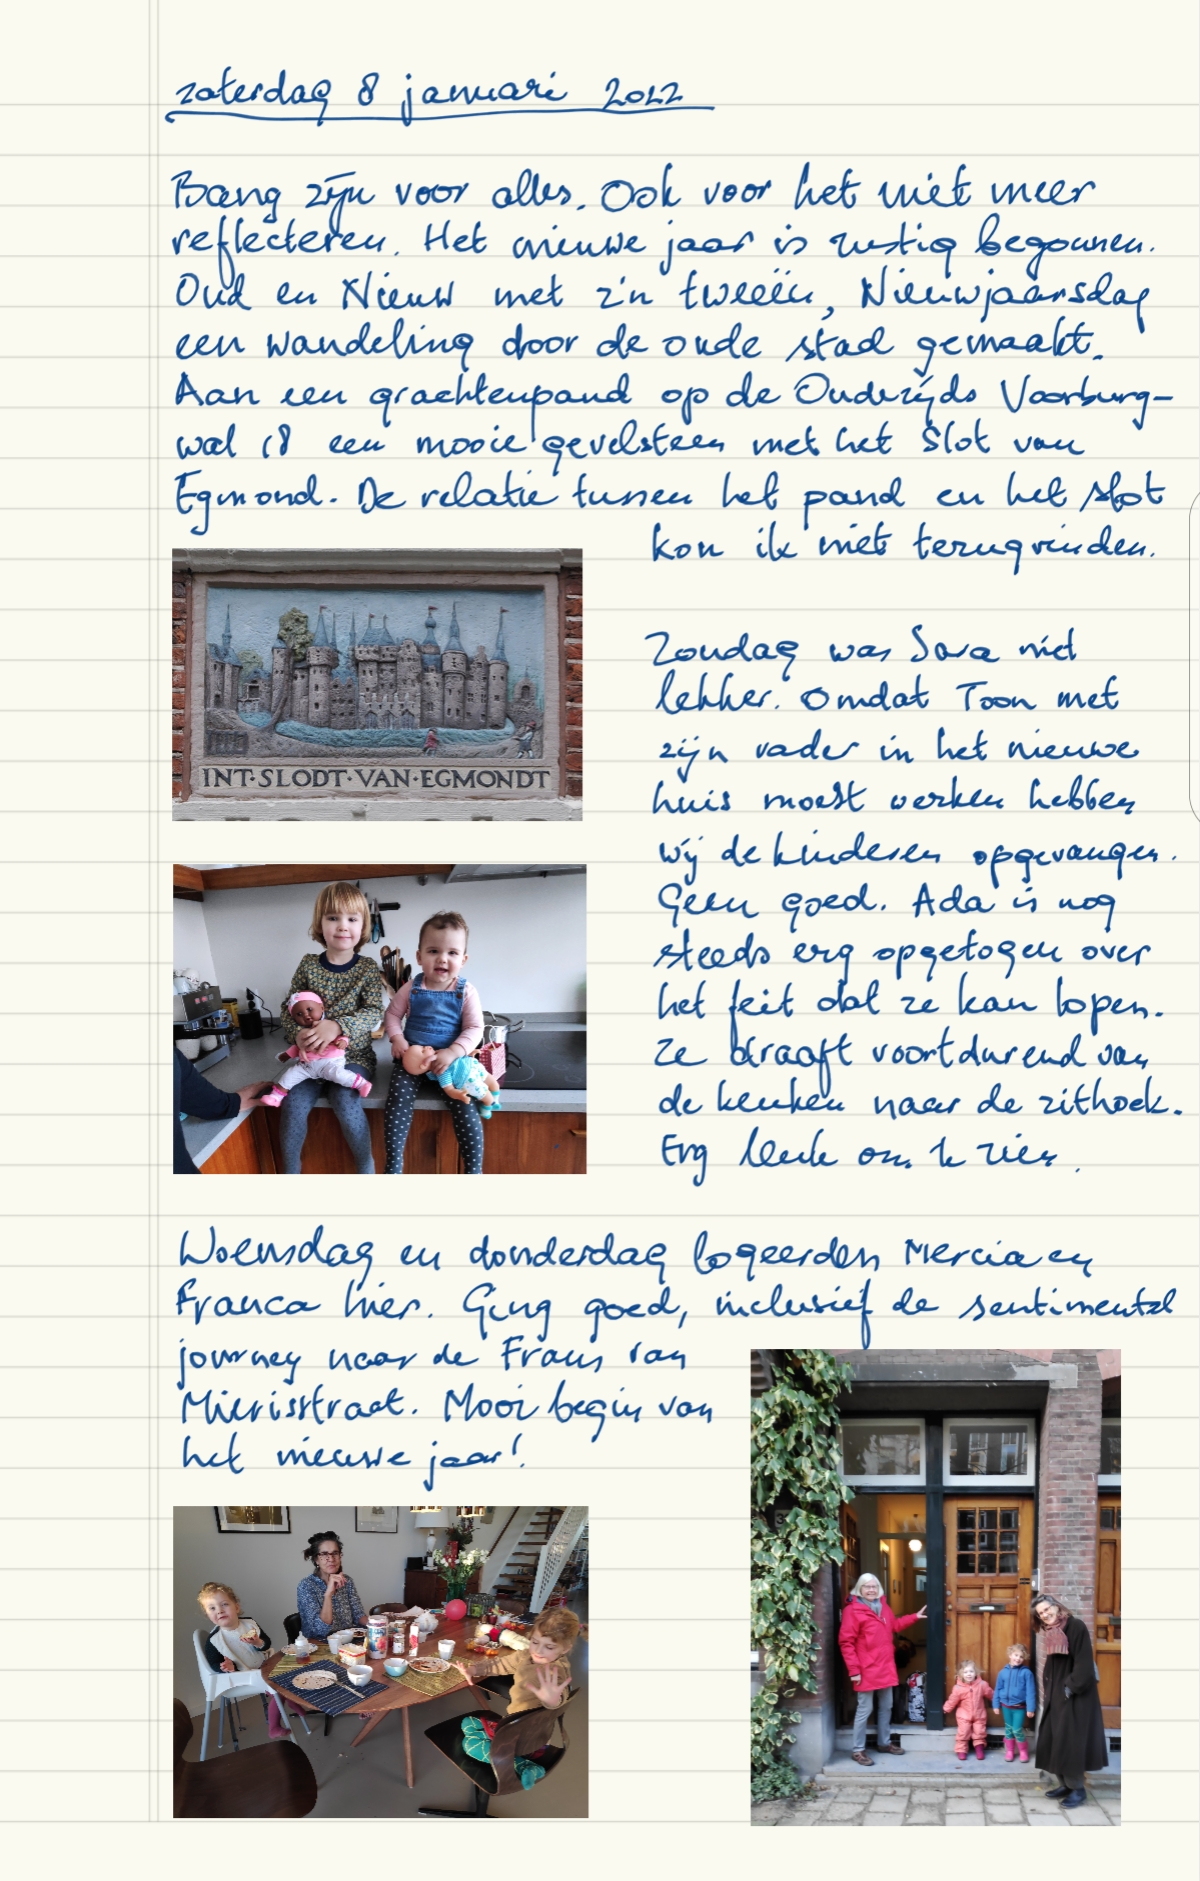 zaterdag 8 januari 2022
Bang zijn voor alles. Ook voor het niet meer
reflecteren. Het nieuwe jaar is rustig begonnen.
Oud en Nieuw met z'n tweeën, Nieuwjaarsdag
een wandeling door de oude stad gemaakt.
Aan een grachtenpand op de Oudezijds Voorburg-
wal 18 een mooie gevelsteen met het Slot van
Egmond. De relatie tussen het pand en het slot
kon ik niet terugvinden.
INT·SLODT·VAN·EGMONDT
Zondag was Sara niet
lekker. Omdat Toon met
zijn vader in het nieuwe
huis moest werken hebben
wij de kinderen opgevangen.
Geen goed. Ada is nog
steeds erg opgetogen over
het feit dat ze kan lopen.
Ze draaft voortdurend van
de keuken naar de zithoek.
Erg leuk om te zien.
Woensdag en donderdag logeerden Mercia en
Franca hier. Ging goed, inclusief de sentimental
journey naar de Frans van
Mierisstraat. Mooi begin van
het nieuwe jaar!